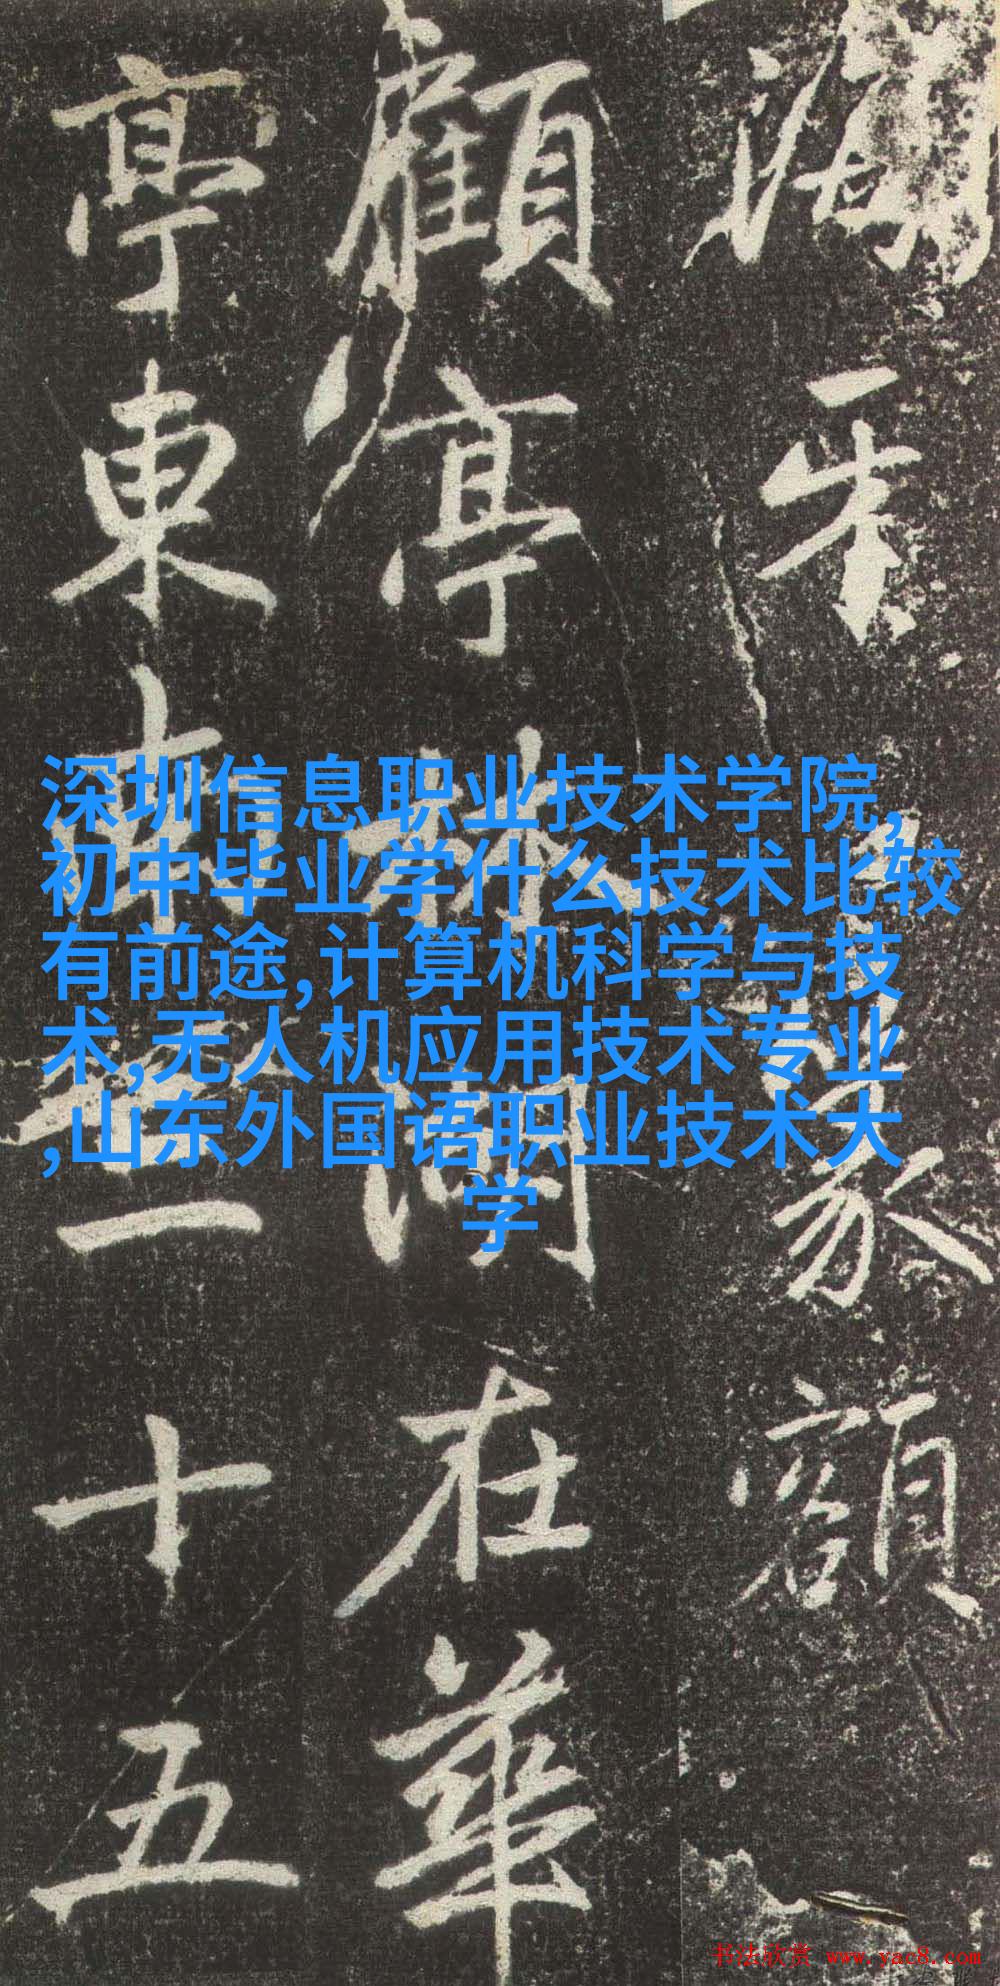 篆額
顧亭林湖在華
亭東南三十五
深圳信息职业技术学院,
初中毕业学什么技术比较
有前途,计算机科学与技
术,无人机应用技术专业
,山东外国语职业技术大
学
书法欣赏 www.yac8.com